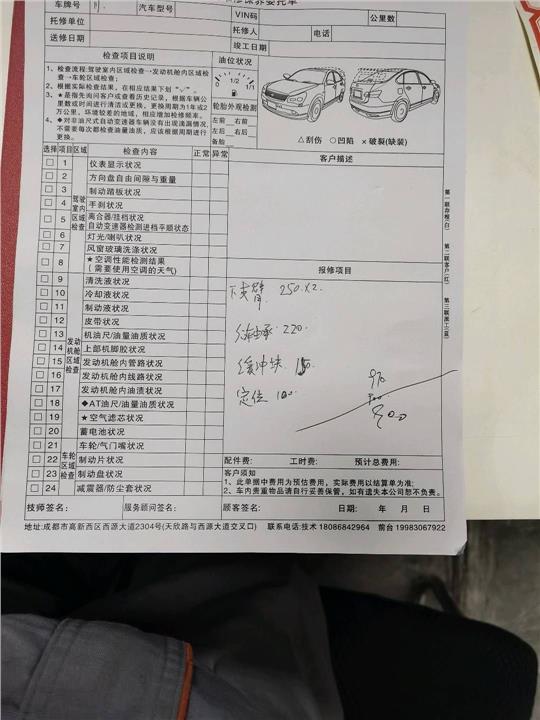 车牌号
汽车型号
VIN码
公里数
托修单位
托修人
电话
送修日期
竣工日期
检查项目说明
油位状况
1、检查流程:驾驶室内区域检查→发动机舱内区域检查→车轮区域检查;
2、根据实际检查结果，在相应结果下划“√”。
3、★是指先询问客户或查看历史记录，根据车辆公里数或时间进行清洁或更换，更换周期为1年或2万公里，环境较差的地域，相应增加检修频率。
4、◆对非油尺式自动变速器车辆没有出现油漏情况，不需要每次都检查油量油质，应该根据周期进行更换。
0 1/2 1/1
轮胎外观检测
左前 右前
左后 右后
备胎
△刮伤 ○凹陷 × 破裂(缺装)
选择 项目 区域 检查内容 正常 异常
客户描述
驾驶室内区域检查
1 仪表显示状况
2 方向盘自由间隙与重量
3 制动踏板状况
4 手刹状况
5 离合器/挂档状况
自动变速器检测进档平顺状态
6 灯光/喇叭状况
7 风窗玻璃洗涤状况
8 ★空调性能检测结果
(需要使用空调的天气)
发动机舱区域检查
9 清洗液状况
10 冷却液状况
11 制动液状况
12 皮带状况
13 机油尺/油量油质状况
14 上部机脚胶状况
15 发动机舱内管路状况
16 发动机舱内线路状况
17 发动机舱内油渍状况
18 ◆AT油尺/油量油质状况
19 ★空气滤芯状况
20 蓄电池状况
车轮区域检查
21 车轮/气门嘴状况
22 制动片状况
23 制动盘状况
24 减震器/防尘套状况
报修项目
下支臂 250.×2.
220.
缓冲块
定位 100.
第一联存根(白)
第二联客户(红)
第三联施工(蓝)
配件费: 工时费: 预计总费用:
客户须知
1、此单据中费用为预估费用，实际费用以结算单为准;
2、车内贵重物品请自行妥善保管，如有遗失本公司恕不负责。
技师签名: 服务顾问签名: 顾客签名: 日期: 年 月 日
地址:成都市高新西区西源大道2304号(天欣路与西源大道交叉口) 联系电话:技术 18086842964 前台 19983067922